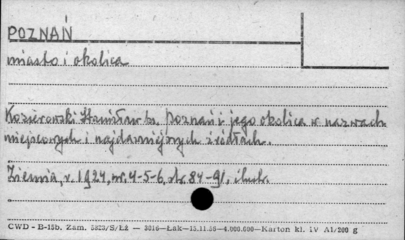 POZNAŃ
miasto i okolica
Kozierowski Stanisław ks. Poznań i jego okolica w nazwach
miejscowych i najdawniejszych źródłach.
Ziemia, r. 1924, nr. 4-5-6, str. 84-91, ilustr.
CWD - B-15b. Zam. 5823/S/Łż — 3016—Łak—15.11.56—4.000.000—Karton kl. IV A1/200 g